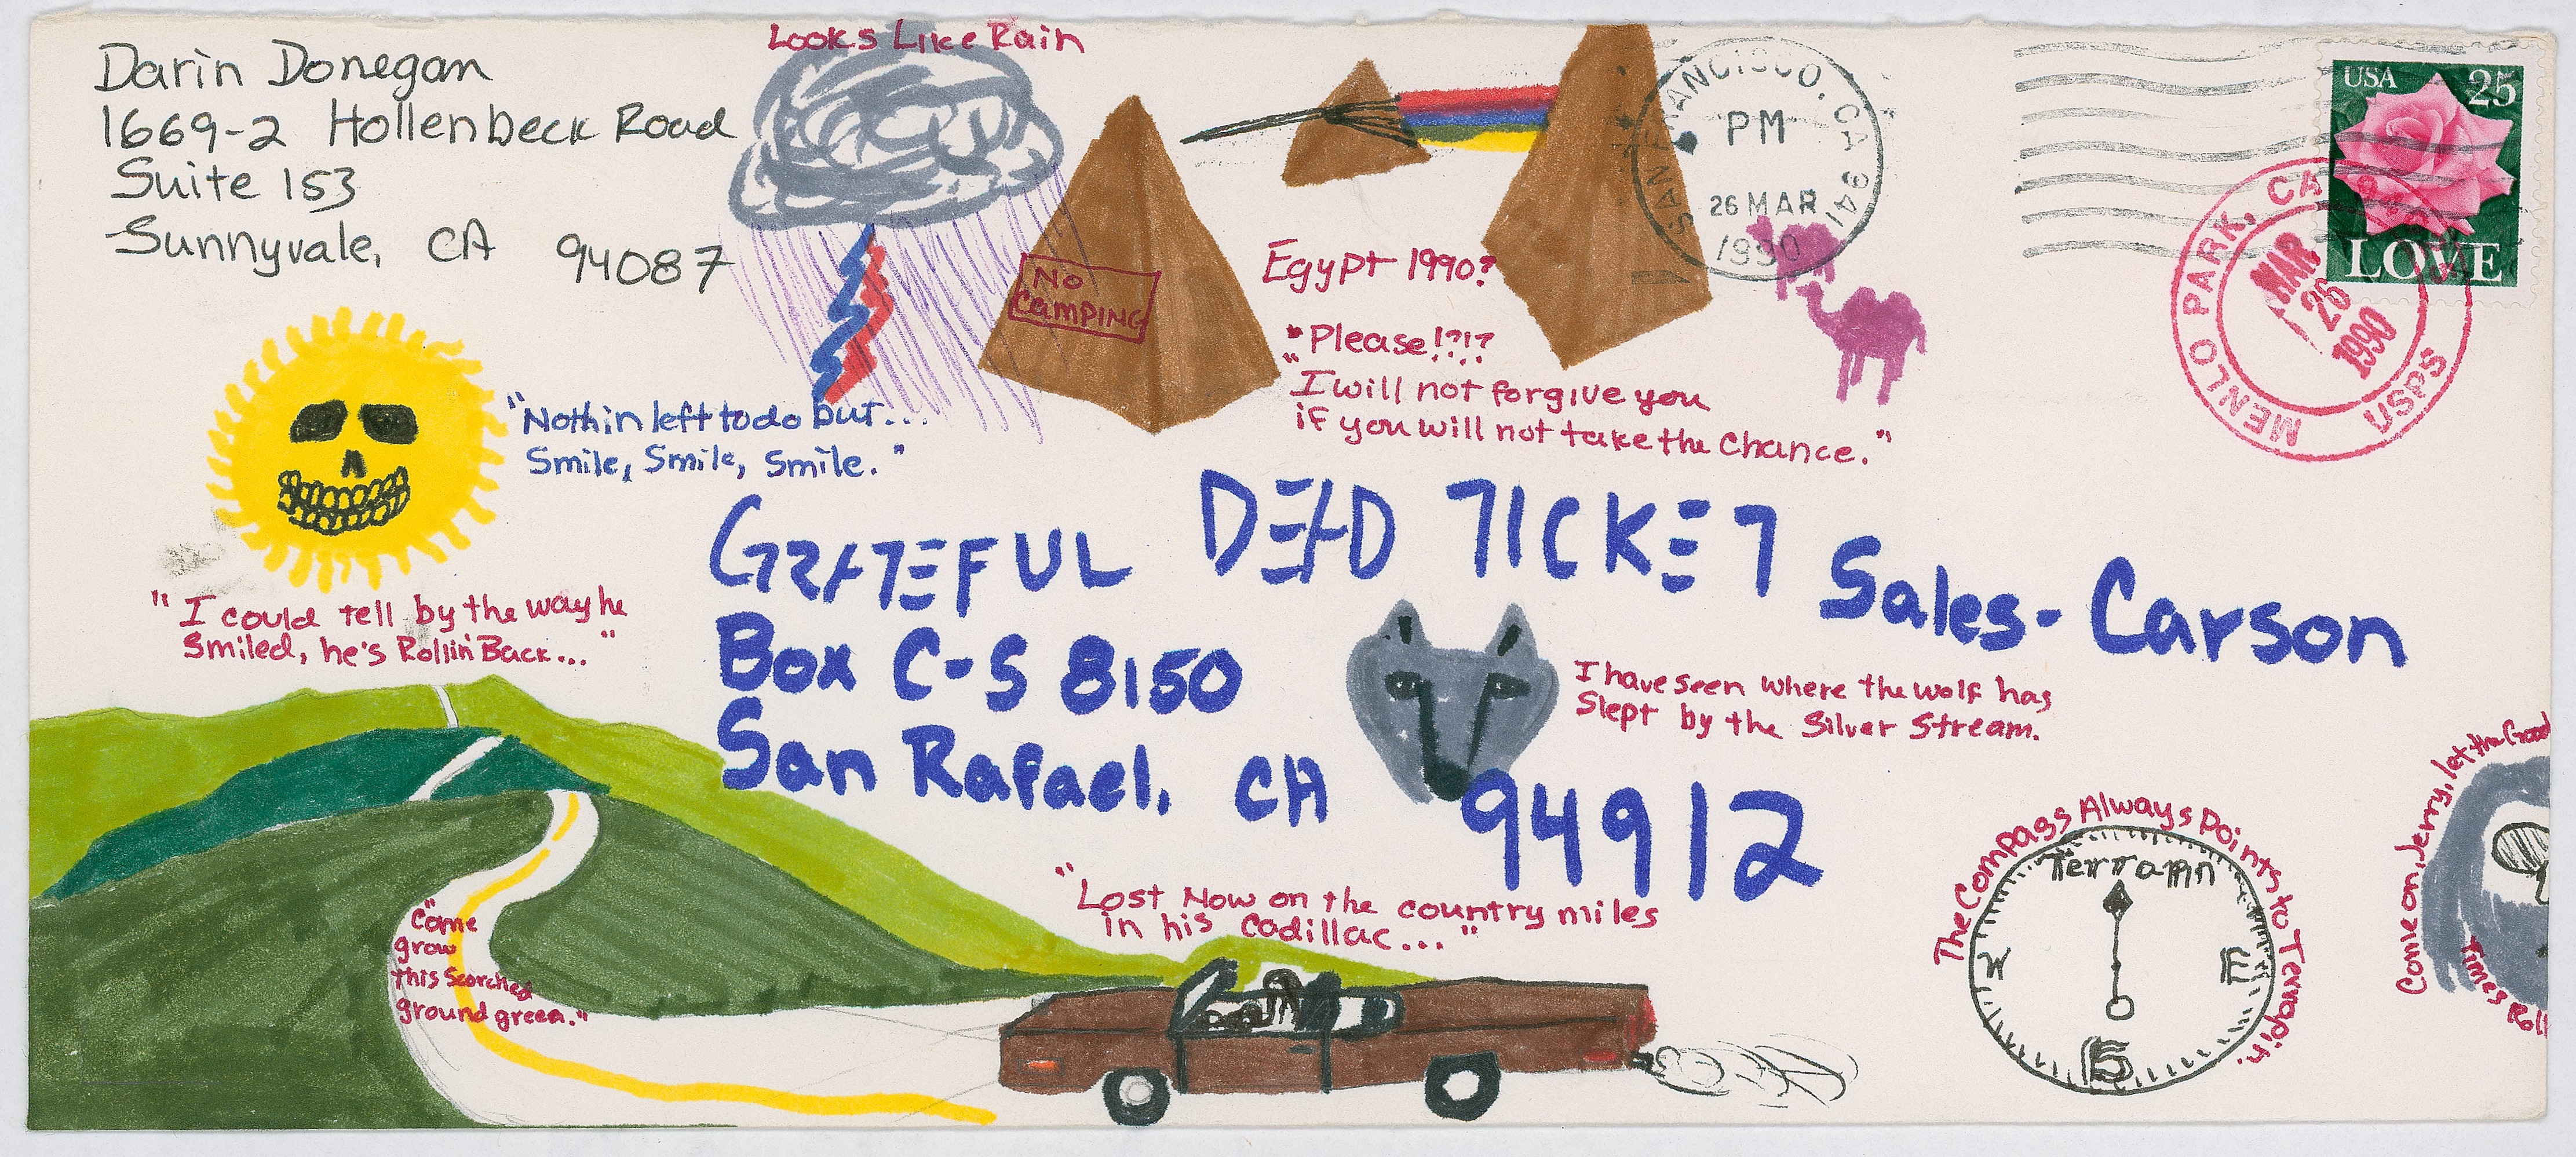 Darin Donegan
1669-2 Hollenbeck Road
Suite 153
Sunnyvale, CA 94087
Looks Like Rain
No
Camping
Egypt 1990?
"Please!?!?
"I will not forgive you
if you will not take the Chance."
SAN FRANCISCO, CA 941
PM
26 MAR
1990
USA 25
LOVE
MENLO PARK, CA
MAR
26
1990
USPS
"Nothin left to do but...
Smile, Smile, Smile."
"I could tell by the way he
Smiled, he's Rollin' Back..."
GRATEFUL DEAD TICKET Sales - Carson
Box C-S 8150
San Rafael, CA 94912
I have seen where the wolf has
Slept by the Silver Stream.
"Come
grow
this Scorched
ground green."
"Lost Now on the country miles
in his Cadillac..."
The Compass Always Points to Terrapin.
Terrapin
W
E
S
Come on, Jerry, let the Good
Times Roll